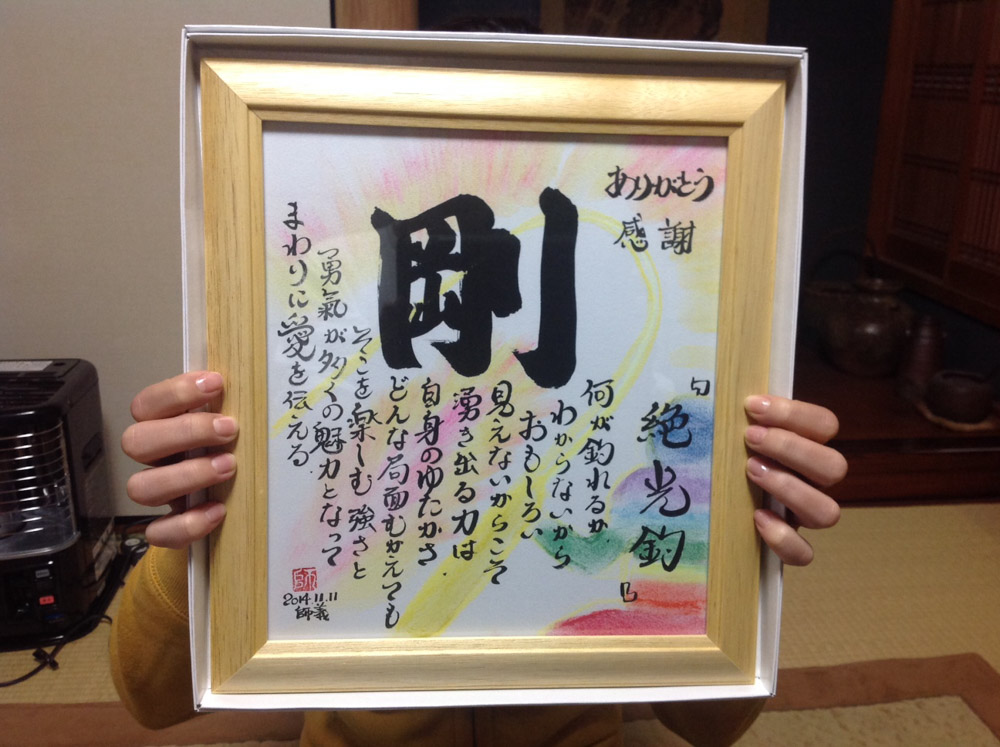 ありがとう
感謝
「絶光釣」
剛
何が釣れるか
わからないから
おもしろい
見えないからこそ
湧き出る力は
自身のゆたかさ
どんな局面むかえても
そこを楽しむ強さと
勇氣が多くの魅力となって
まわりに愛を伝える
2014.11.11
師義